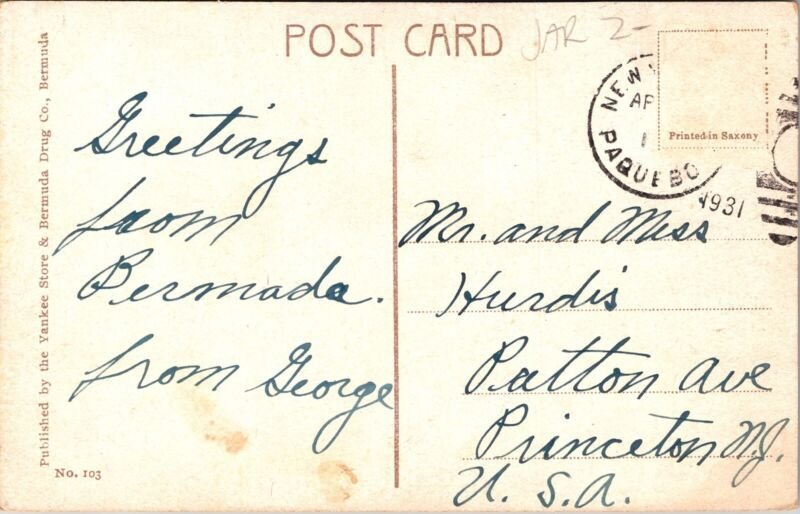 POST CARD
JAR 2-
NEW
AP
1
PAQUEBO
1931
Printed in Saxony
Published by the Yankee Store & Bermuda Drug Co., Bermuda
No. 103
Greetings
from
Bermuda.
from George
Mr. and Miss
Hurdis
Patton Ave
Princeton N.J.
U. S. A.